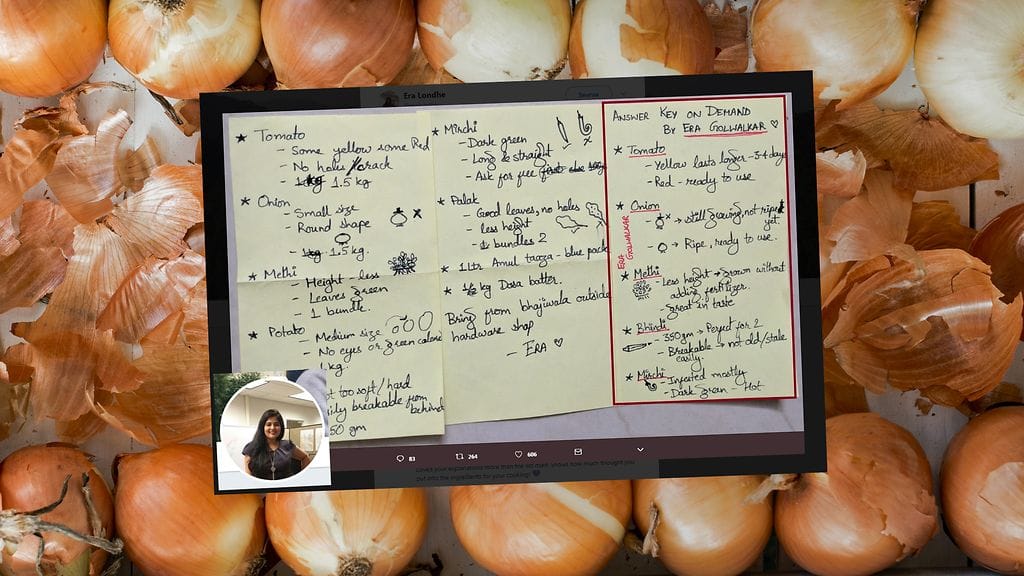 Era Londhe
★ Tomato
- Some yellow some Red
- No holes/crack
- 1 kg 1.5 kg
★ Onion
- Small size
- Round shape
- 1 kg 1.5 kg.
★ Methi
- Height - less
- Leaves green
- 1 bundle.
★ Potato
- Medium size
- No eyes or green
kg.
too soft/hard
breakable from
behind
50 gm
★ Mirchi
- Dark green
- Long & straight
- Ask for free
★ Palak
- Good leaves, no holes
- less height
- 1 bundles 2
★ 1 ltr Amul tazza - blue pack
★ 1/2 kg Dosa batter.
Bring from bhajiwala outside
hardware shop
- ERA ♡
ANSWER KEY ON DEMAND
BY ERA GOLWALKAR ♡
★ Tomato
- Yellow lasts longer - 3-4 days
- Red - ready to use
★ Onion
- → still growing, not ripe
yet.
- → Ripe, ready to use.
ERA
GOLWALKAR
★ Methi
- Less height → Grown without
adding fertilizer.
- Great in taste
★ Bhindi
- 350gm - Perfect for 2
- Breakable → not old/stale
easily.
★ Mirchi
- Infested mostly
- Dark Green - Hot
83
264
606
Loved your explanations more than the list itself. Shows how much thought you
put into the ingredients for your cooking!